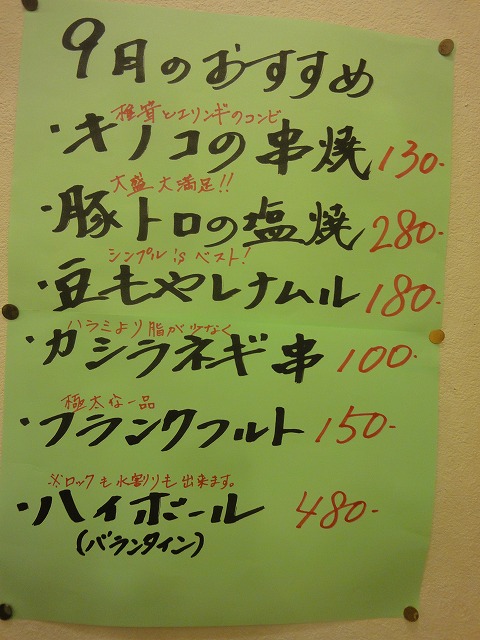 9月のおすすめ
椎茸とエリンギのコンビ
・キノコの串焼 130-
大盛大満足!!
・豚トロの塩焼 280-
シンプル is ベスト!
・豆もやしナムル 180-
ハラミより脂が少なく
・カシラネギ串 100-
極太な一品
・フランクフルト 150-
※ロックも水割りも出来ます。
・ハイボール 480-
(バランタイン)